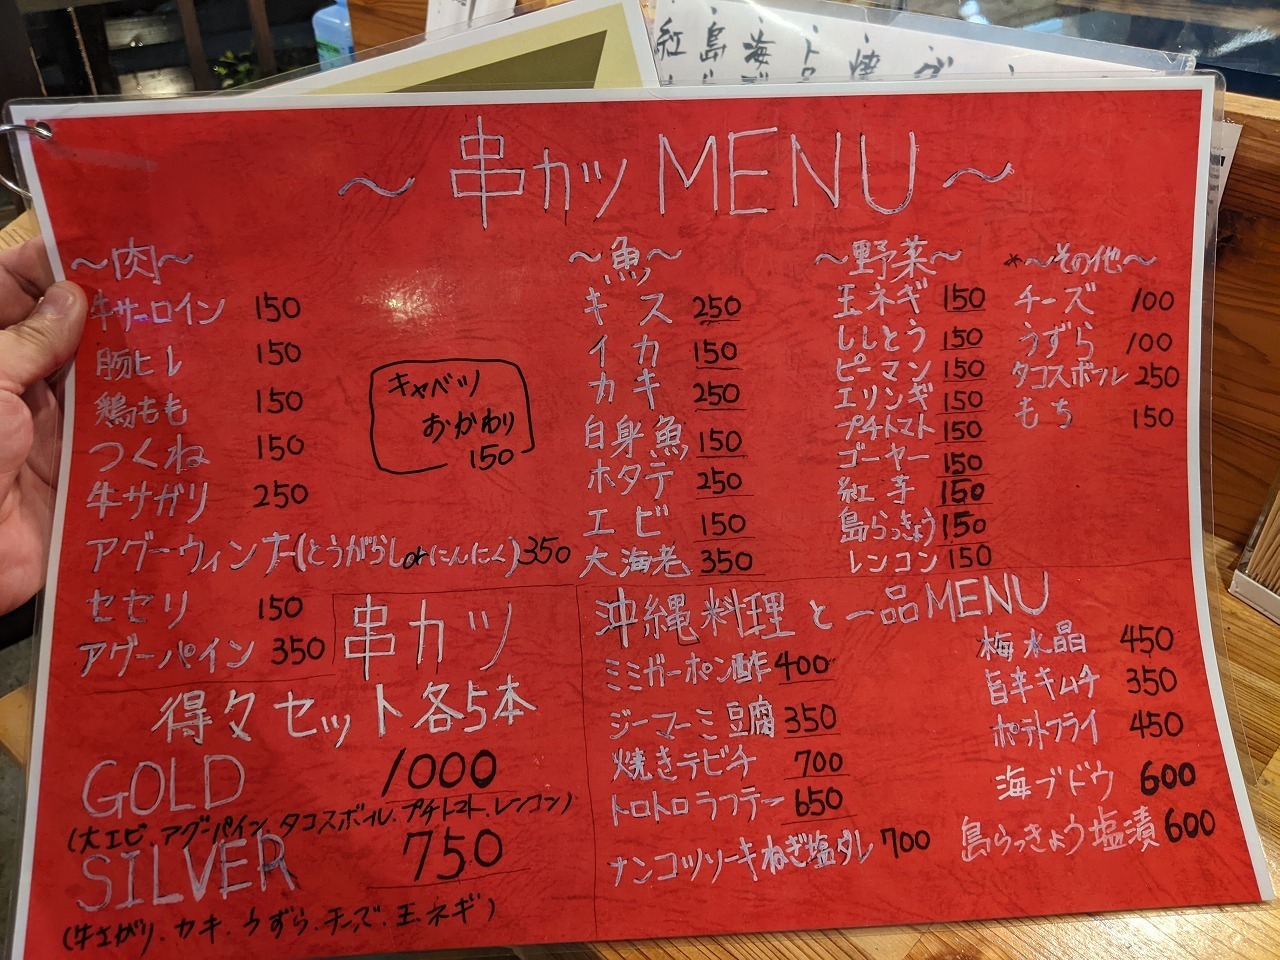 紅 島 海 ト 焼
～串カツ MENU～
～肉～
牛サーロイン 150
豚ヒレ 150
鶏もも 150
つくね 150
牛サガリ 250
アグーウィンナー(とうがらしorにんにく) 350
セセリ 150
アグーパイン 350
キャベツ
おかわり
150
～魚～
キス 250
イカ 150
カキ 250
白身魚 150
ホタテ 250
エビ 150
大海老 350
～野菜～
玉ネギ 150
ししとう 150
ピーマン 150
エリンギ 150
プチトマト 150
ゴーヤー 150
紅芋 150
島らっきょう 150
レンコン 150
*～その他～
チーズ 100
うずら 100
タコスボール 250
もち 150
串カツ
得々セット各5本
GOLD 1000
(大エビ、アグーパイン、タコスボール、プチトマト、レンコン)
SILVER 750
(牛さがり、カキ、うずら、チーズ、玉ネギ)
沖縄料理と一品MENU
ミミガーポン酢 400
ジーマーミ豆腐 350
焼きテビチ 700
トロトロラフテー 650
ナンコツソーキねぎ塩ダレ 700
梅水晶 450
旨辛キムチ 350
ポテトフライ 450
海ブドウ 600
島らっきょう塩漬 600